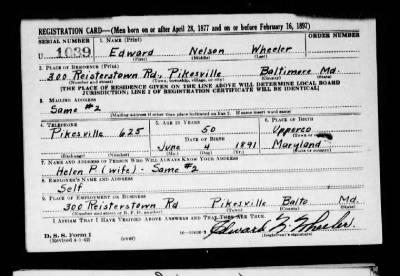 REGISTRATION CARD—(Men born on or after April 28, 1877 and on or before February 16, 1897)
SERIAL NUMBER 1. NAME (Print) ORDER NUMBER
U 1039 Edward Nelson Wheeler
(First) (Middle) (Last)
2. PLACE OF RESIDENCE (Print)
300 Reisterstown Rd., Pikesville Baltimore Md.
(Number and street) (Town, township, village, or city) (County) (State)
[THE PLACE OF RESIDENCE GIVEN ON THE LINE ABOVE WILL DETERMINE LOCAL BOARD
JURISDICTION; LINE 2 OF REGISTRATION CERTIFICATE WILL BE IDENTICAL]
3. MAILING ADDRESS
Same #2
[Mailing address if other than place indicated on line 2. If same insert word same]
4. TELEPHONE 5. AGE IN YEARS 6. PLACE OF BIRTH
Pikesville 625 50 Upperco
DATE OF BIRTH (Town or county)
June 4 1891 Maryland
(Exchange) (Number) (Mo.) (Day) (Yr.) (State or country)
7. NAME AND ADDRESS OF PERSON WHO WILL ALWAYS KNOW YOUR ADDRESS
Helen P. (wife) - Same #2
8. EMPLOYER'S NAME AND ADDRESS
Self
9. PLACE OF EMPLOYMENT OR BUSINESS
300 Reisterstown Rd Pikesville Balto Md.
(Number and street or R. F. D. number) (Town) (County) (State)
I AFFIRM THAT I HAVE VERIFIED ABOVE ANSWERS AND THAT THEY ARE TRUE.
D. S. S. Form 1
(Revised 4-1-42) (over) Edward N. Wheeler
(Registrant's signature)